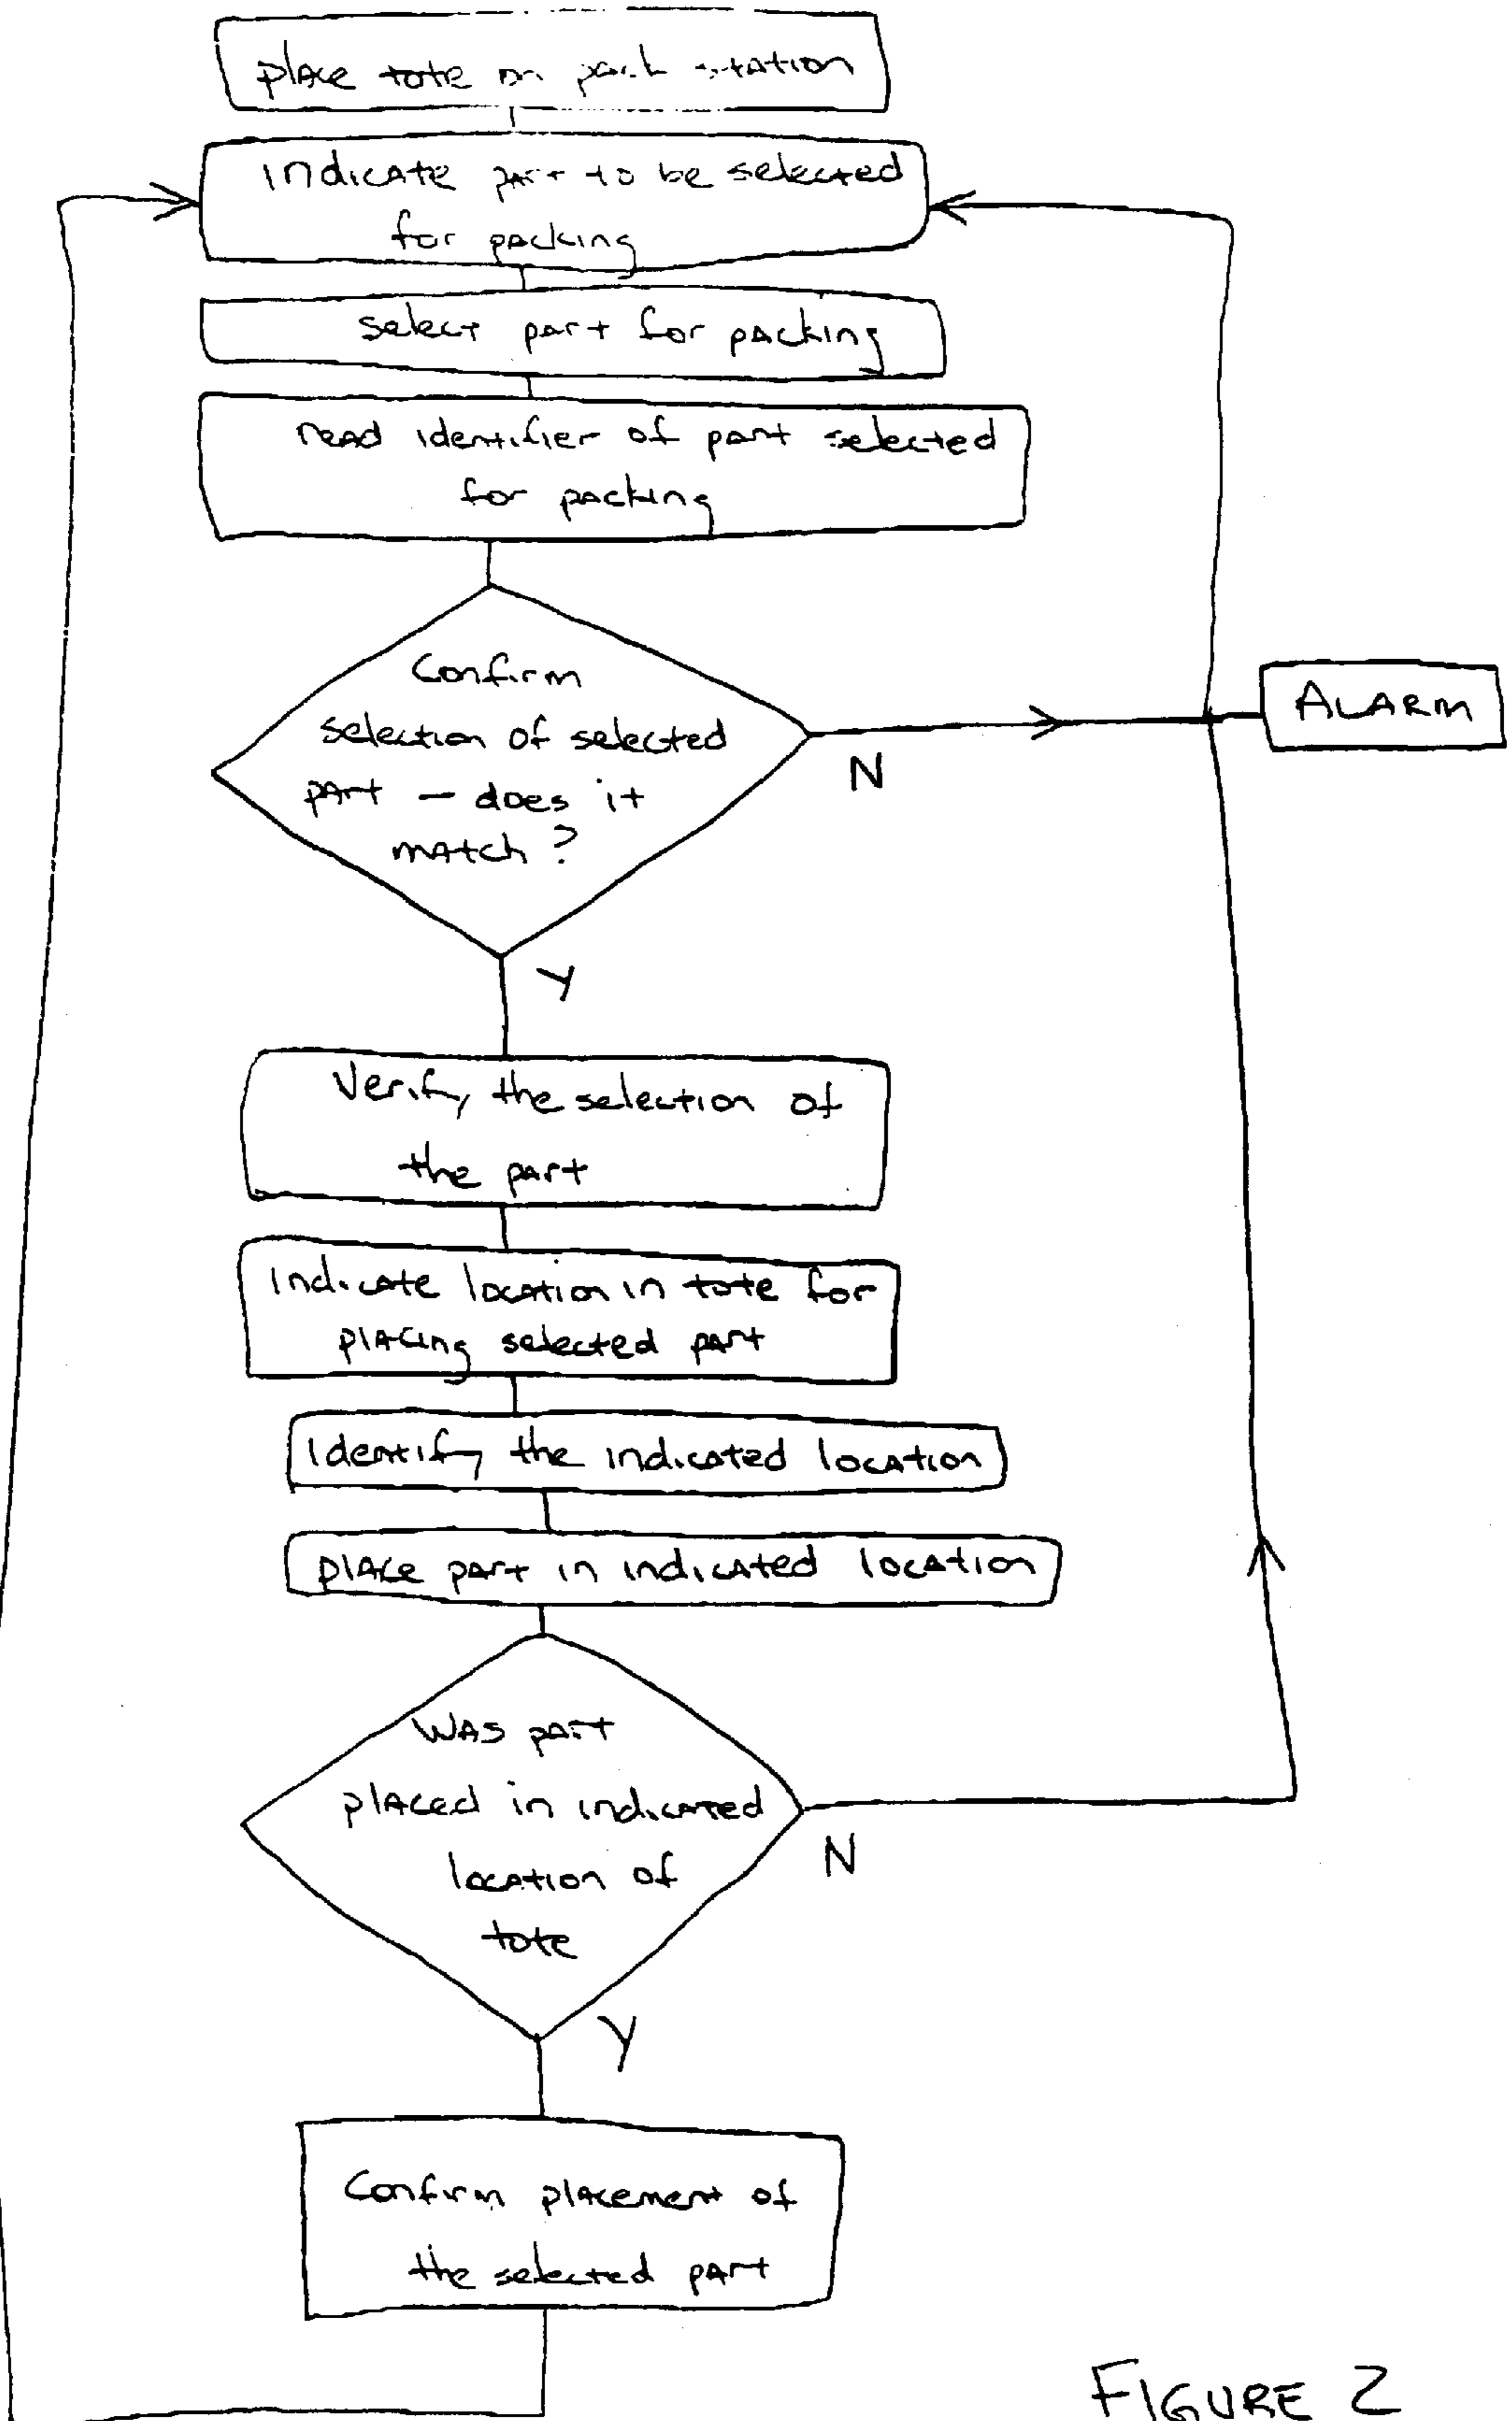 place tote on pack station
Indicate part to be selected
for packing
select part for packing
read identifier of part selected
for packing
Confirm
selection of selected
part — does it
match?
N
ALARM
Y
Verify the selection of
the part
Indicate location in tote for
placing selected part
Identify the indicated location
place part in indicated location
Was part
placed in indicated
location of
tote
N
Y
Confirm placement of
the selected part
FIGURE 2